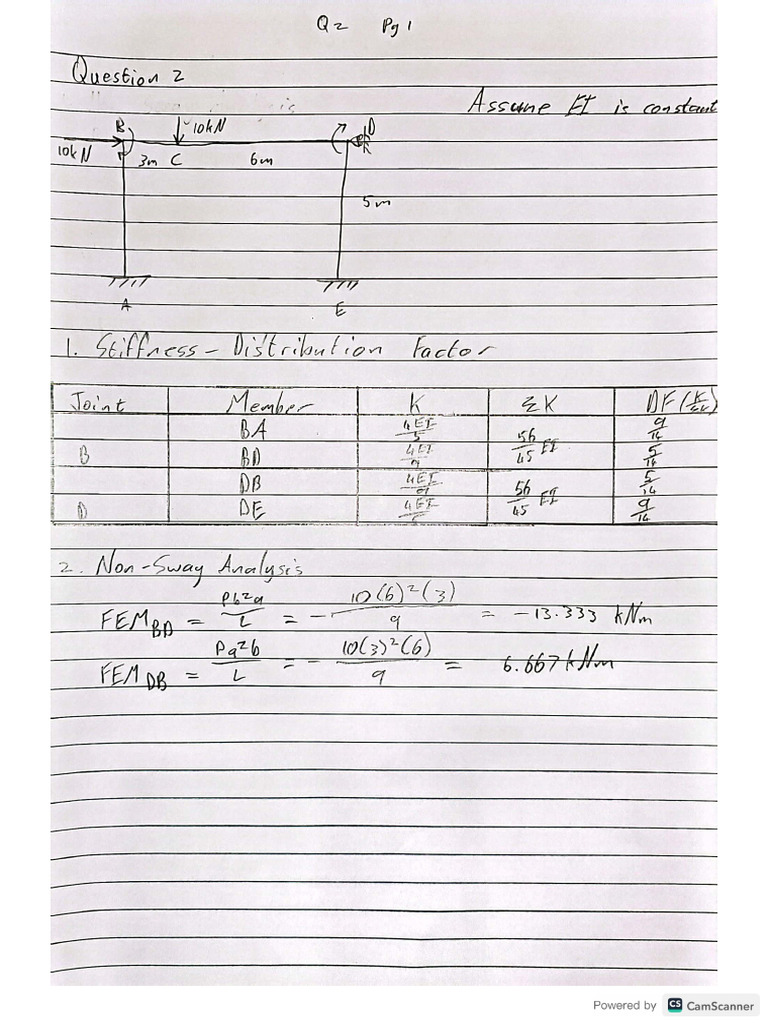 Q2 Pg 1
Question 2
Assume EI is constant
B 10kN D
10kN 3m C 6m
5m
A E
1. Stiffness - Distribution Factor
Joint Member K ΣK DF (K/ΣK)
BA 4EI/5 9/14
B BD 4EI/9 56/45 EI 5/14
DB 4EI/9 5/14
D DE 4EI/5 56/45 EI 9/14
2. Non-Sway Analysis
FEM BD = Pb²a/L = - 10(6)²(3)/9 = -13.333 kNm
FEM DB = Pa²b/L = - 10(3)²(6)/9 = 6.667 kNm
Powered by CS CamScanner